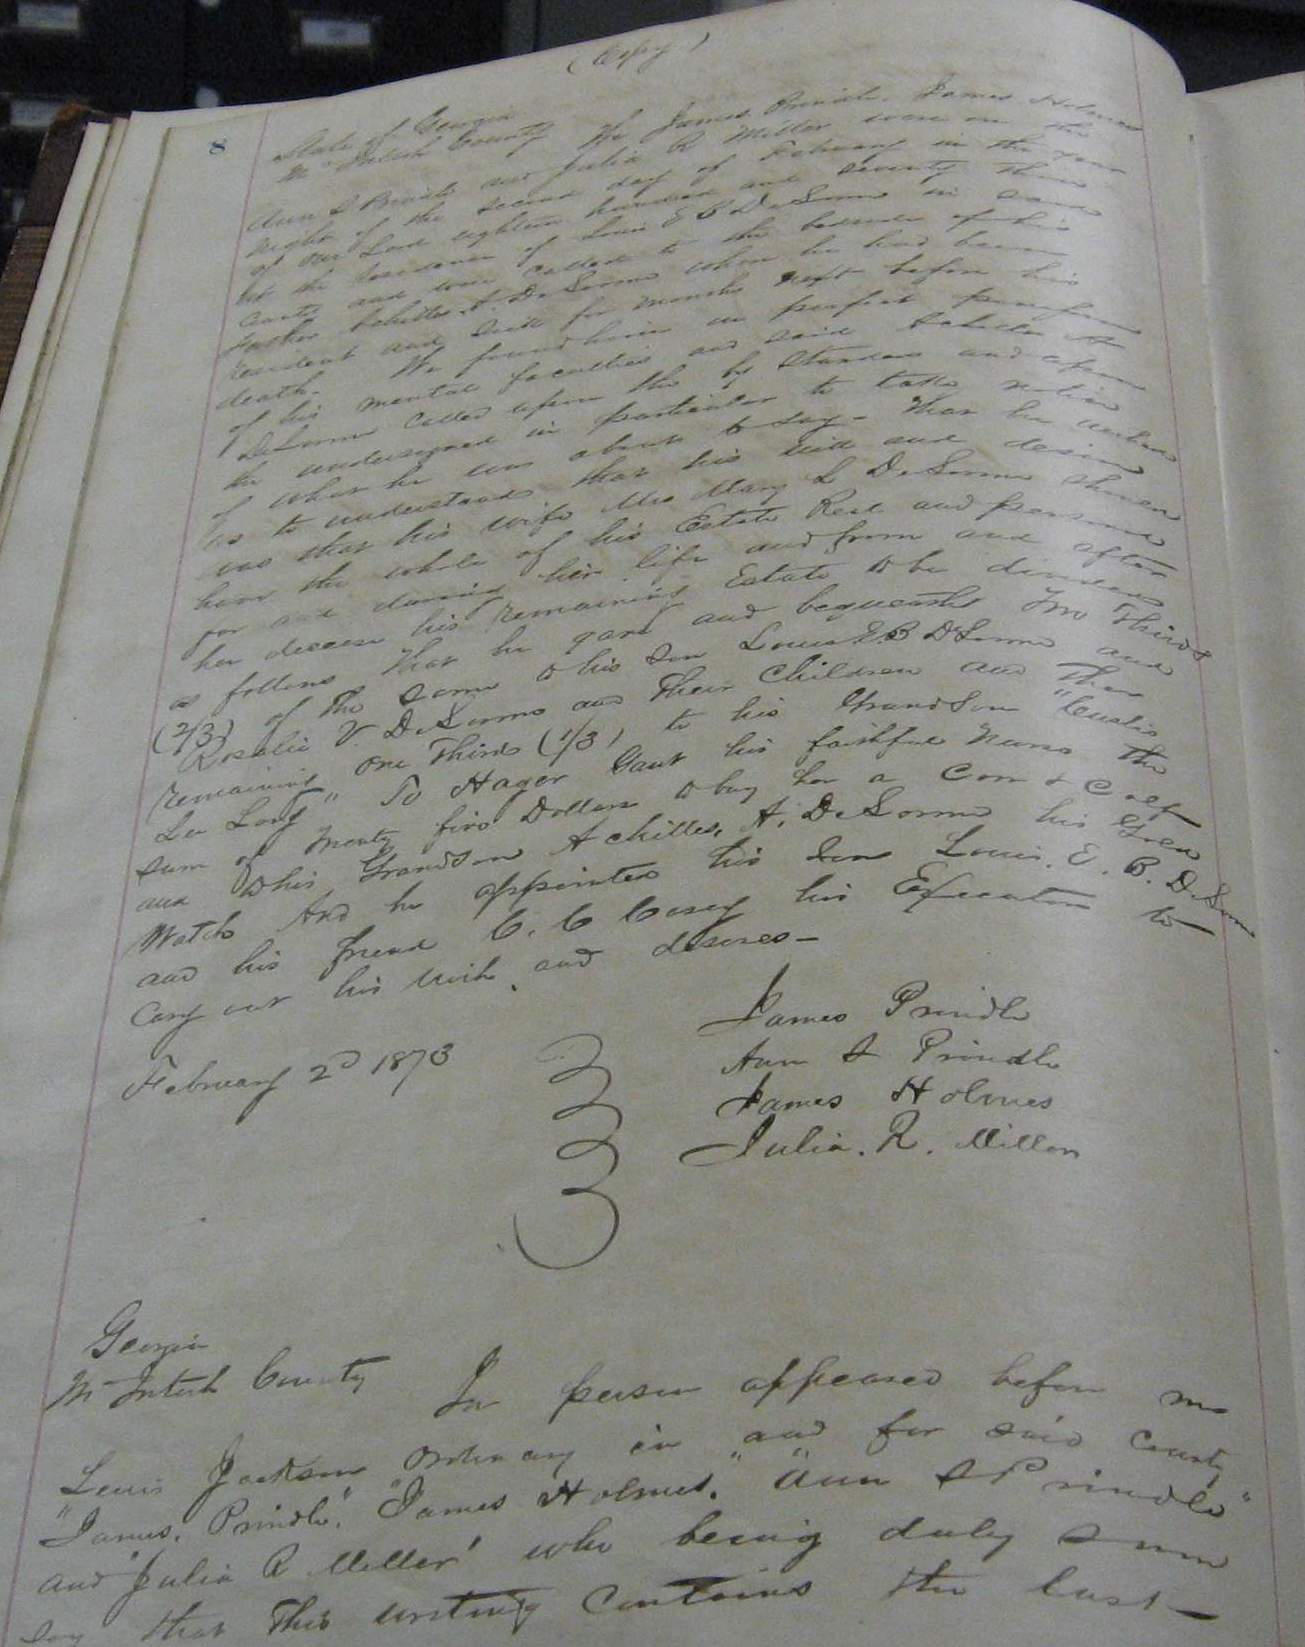 (Copy)
8
State of Georgia
McIntosh County We James Prindle, James Holmes
Ann S Prindle and Julia R Miller were on the
night of the second day of February in the year
of our Lord eighteen hundred and seventy three
at the residence of Louis E B DeLorme in said
County and were called to the bedside of his
Father Achilles A. DeLorme where he had been
resident and sick for months next before his
death. We found him in perfect
of his mental faculties and said Achilles A
DeLorme called upon the by standers and upon
the undersigned in particular to take notice
of what he was about to say - that he wished
us to understand that his will and desire
was that his wife Mrs Mary L DeLorme should
have the whole of his Estate Real and personal
for and during her life and from and after
her decease his remaining Estate to be divided
as follows That he gave and bequeathed Two Thirds
(2/3) of the same to his son Louis E. B DeLorme and
Rosalie V. DeLorme and Their Children and the
remaining one Third (1/3) to his Grandson
De Long" To Hager Gaut his faithful Nurse the
sum of Twenty five Dollars to buy her a Cow & Calf
and to his Grandson Achilles. A. DeLorme his
Watch And he appointed his son Louis. E. B. DeLorme
and his friend C. C Casey his Executors to
Cary out his will and desires -
February 2d 1873
James Prindle
Ann S Prindle
James Holmes
Julia. R. Miller
Georgia
McIntosh County In person appeared before me
Lewis Jackson Ordinary in and for said County
"James. Prindle." "James Holmes." "Ann S Prindle"
and "Julia R Miller" who being duly sworn
say that This writing Contains the last